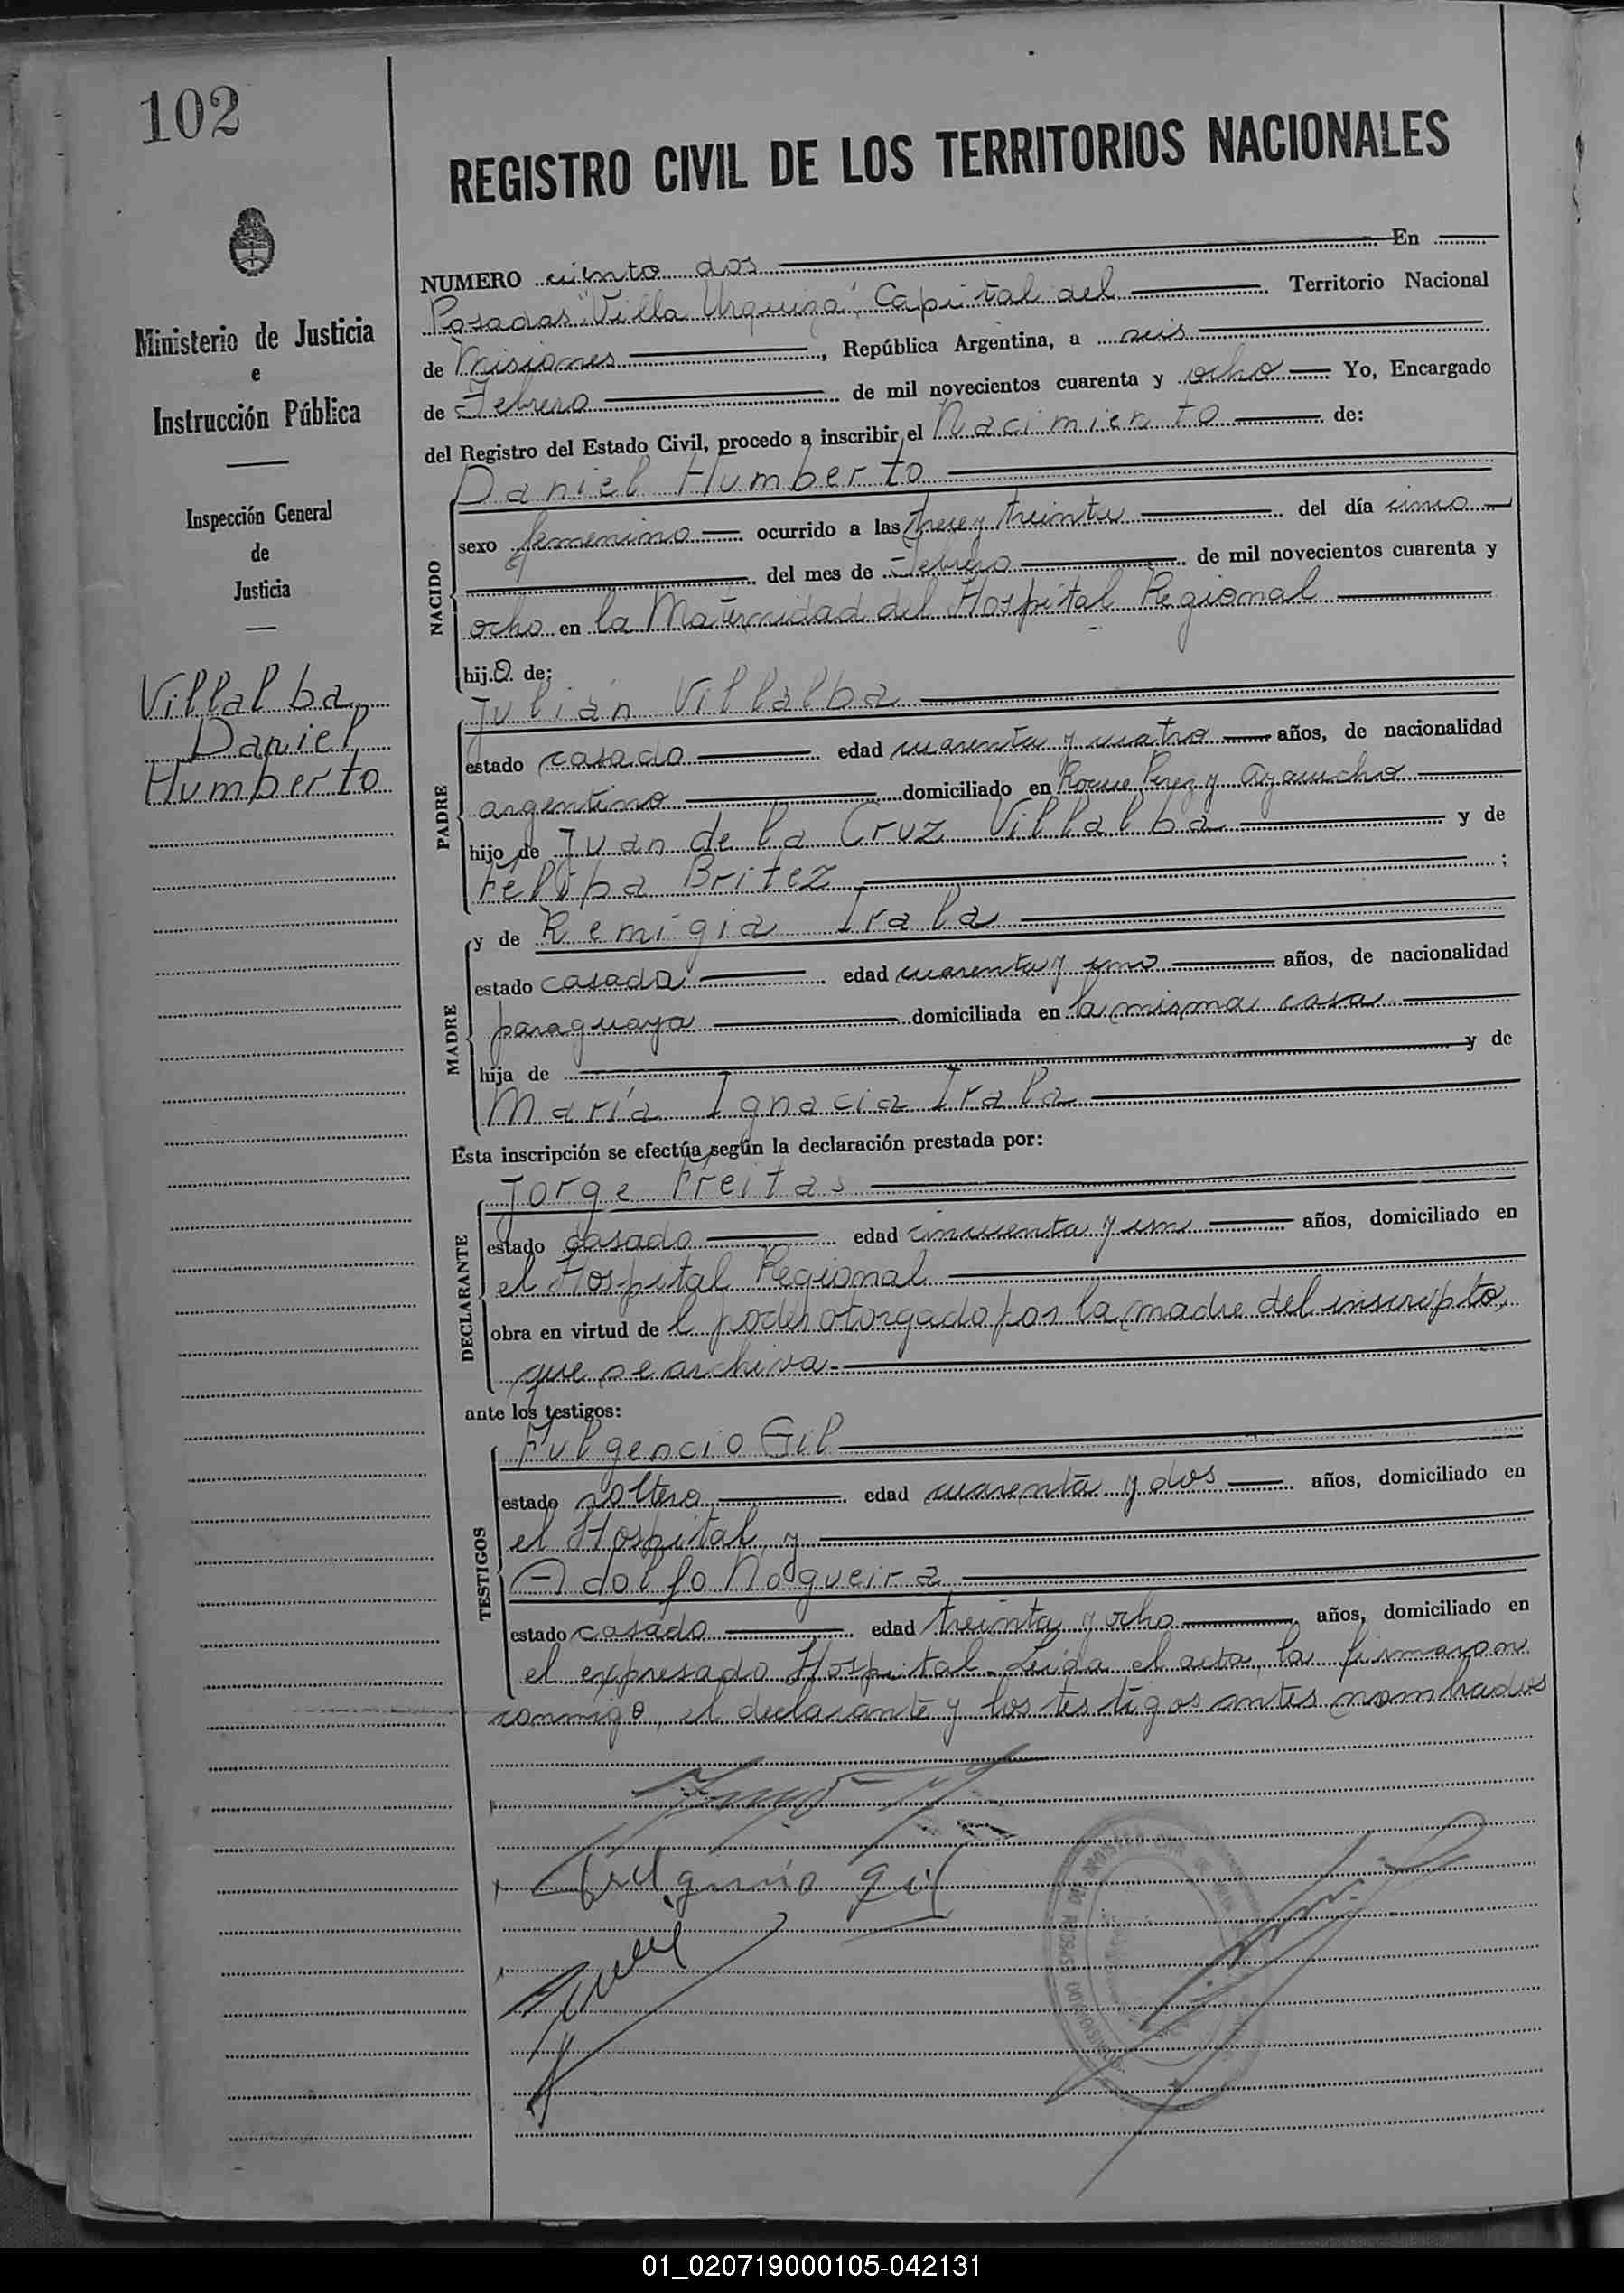 102
REGISTRO CIVIL DE LOS TERRITORIOS NACIONALES
Ministerio de Justicia
e
Instrucción Pública
Inspección General
de
Justicia
Villalba
Daniel
Humberto
NUMERO ciento dos En
Posadas "Villa Urquiza", Capital del Territorio Nacional
de Misiones, República Argentina, a seis
de Febrero de mil novecientos cuarenta y ocho Yo, Encargado
del Registro del Estado Civil, procedo a inscribir el Nacimiento de:
NACIDO
Daniel Humberto
sexo femenino ocurrido a las trece y treinta del día cinco
del mes de Febrero de mil novecientos cuarenta y
ocho en la Maternidad del Hospital Regional
hijo de:
PADRE
Julián Villalba
estado casado edad cuarenta y cuatro años, de nacionalidad
argentino domiciliado en Roque Perez y Ayacucho
hijo de Juan de la Cruz Villalba y de
Felipa Britez ;
MADRE
y de Remigia Irala
estado casada edad cuarenta y uno años, de nacionalidad
paraguaya domiciliada en la misma casa
hija de y de
María Ignacia Irala
Esta inscripción se efectúa según la declaración prestada por:
DECLARANTE
Jorge Freitas
estado casado edad cincuenta y un años, domiciliado en
el Hospital Regional
obra en virtud de l poder otorgado por la madre del inscripto,
que se archiva.
ante los testigos:
TESTIGOS
Fulgencio Gil
estado soltero edad cuarenta y dos años, domiciliado en
el Hospital, y
Adolfo Nogueira
estado casado edad treinta y ocho años, domiciliado en
el expresado Hospital. Leída el acta, la firmaron
conmigo, el declarante y los testigos antes nombrados
Fulgencio Gil
01_020719000105-042131